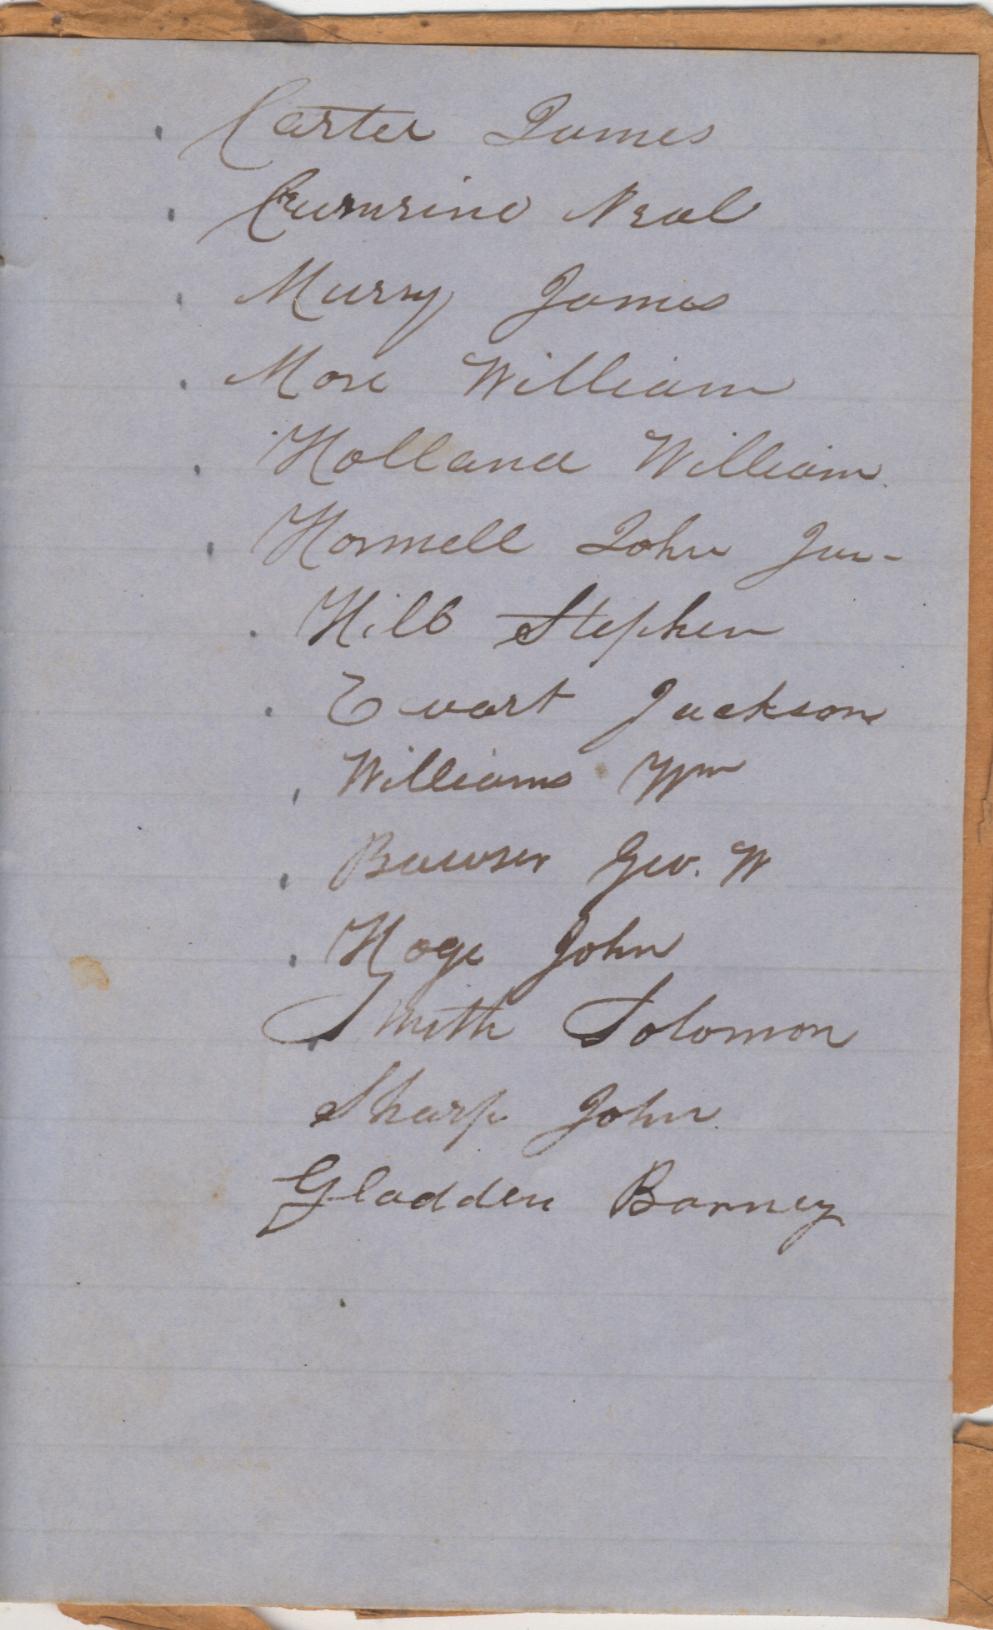 Carter James
Crumrine Neal
Murry James
More William
Holland William
Hormell John Jun-
Hill Stephen
Ewart Jackson
Williams Wm
Bowser Geo. W
Hoge John
Smith Solomon
Sharp John
Gladden Barney